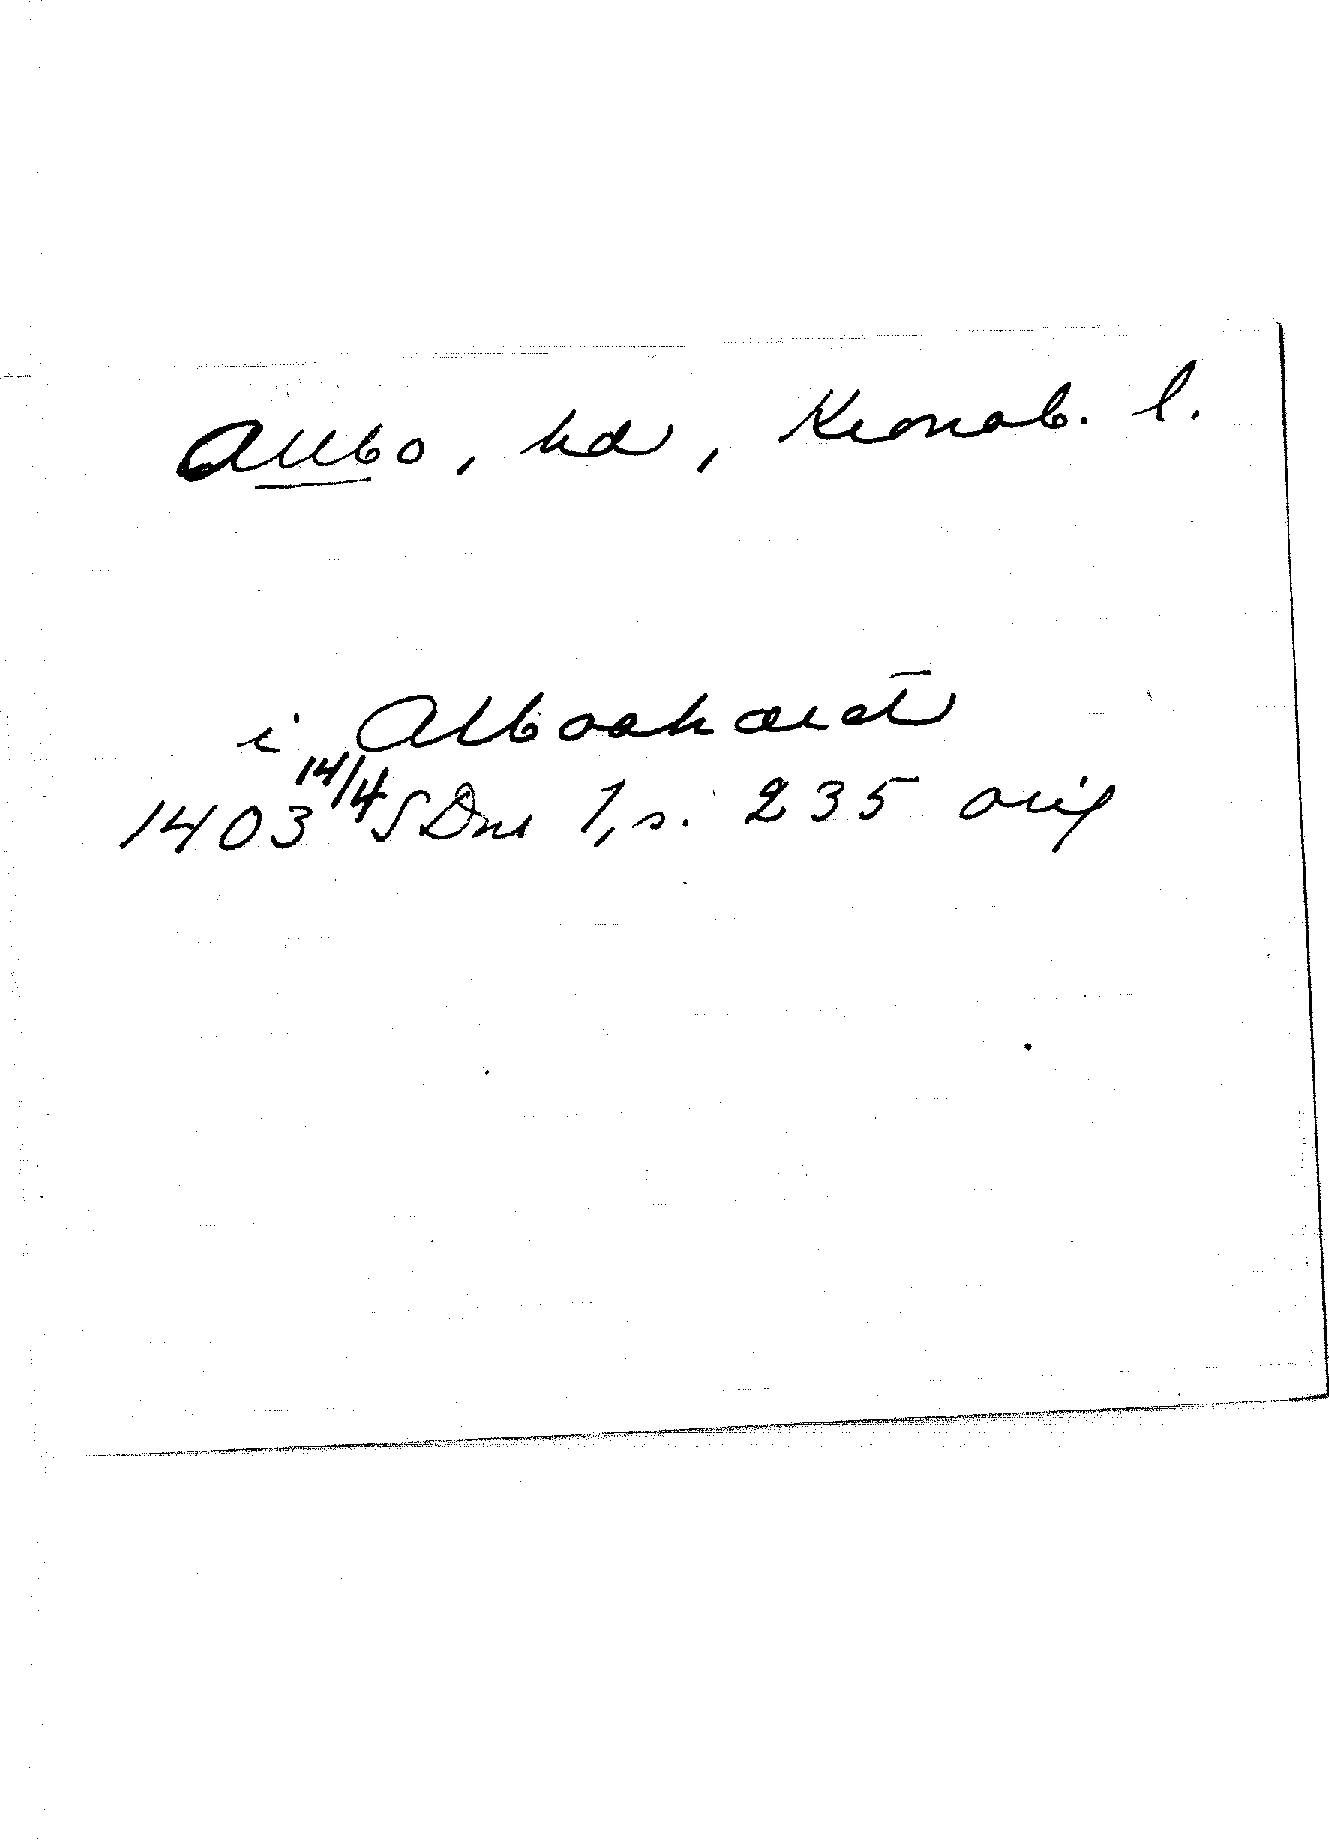 Allbo, hd, Kronob. l.
i Alboahæret
1403 14/4 SDns 1, s. 235 orig